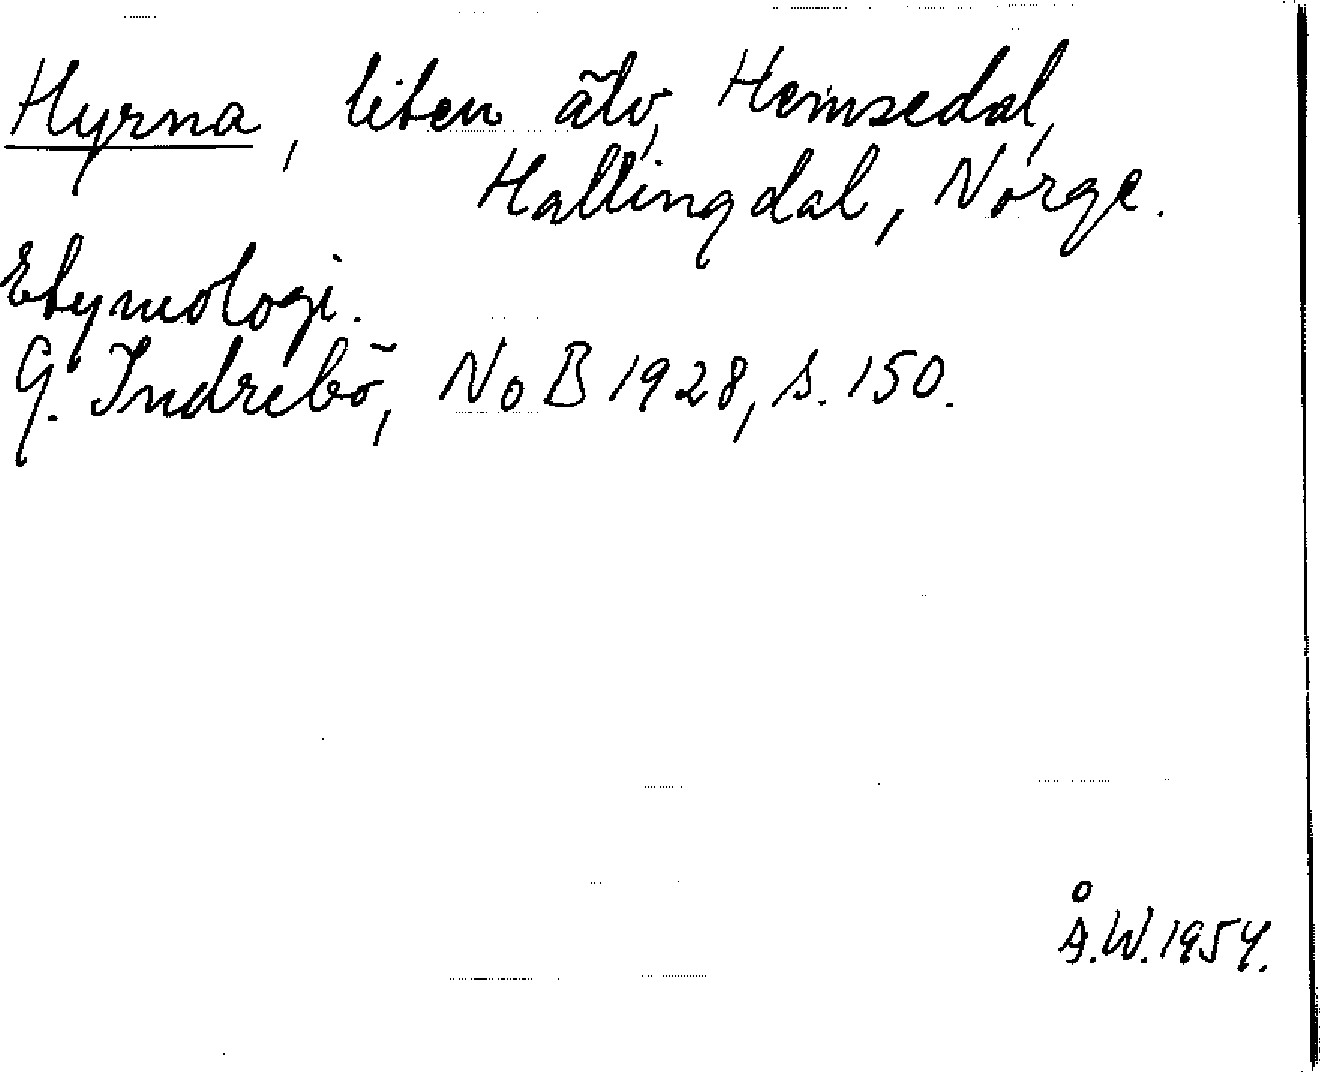 Hyrna, liten älv, Hemsedal,
Hallingdal, Norge.
Etymologi.
G. Indrebö, NoB 1928, s. 150.
Å.W. 1954.